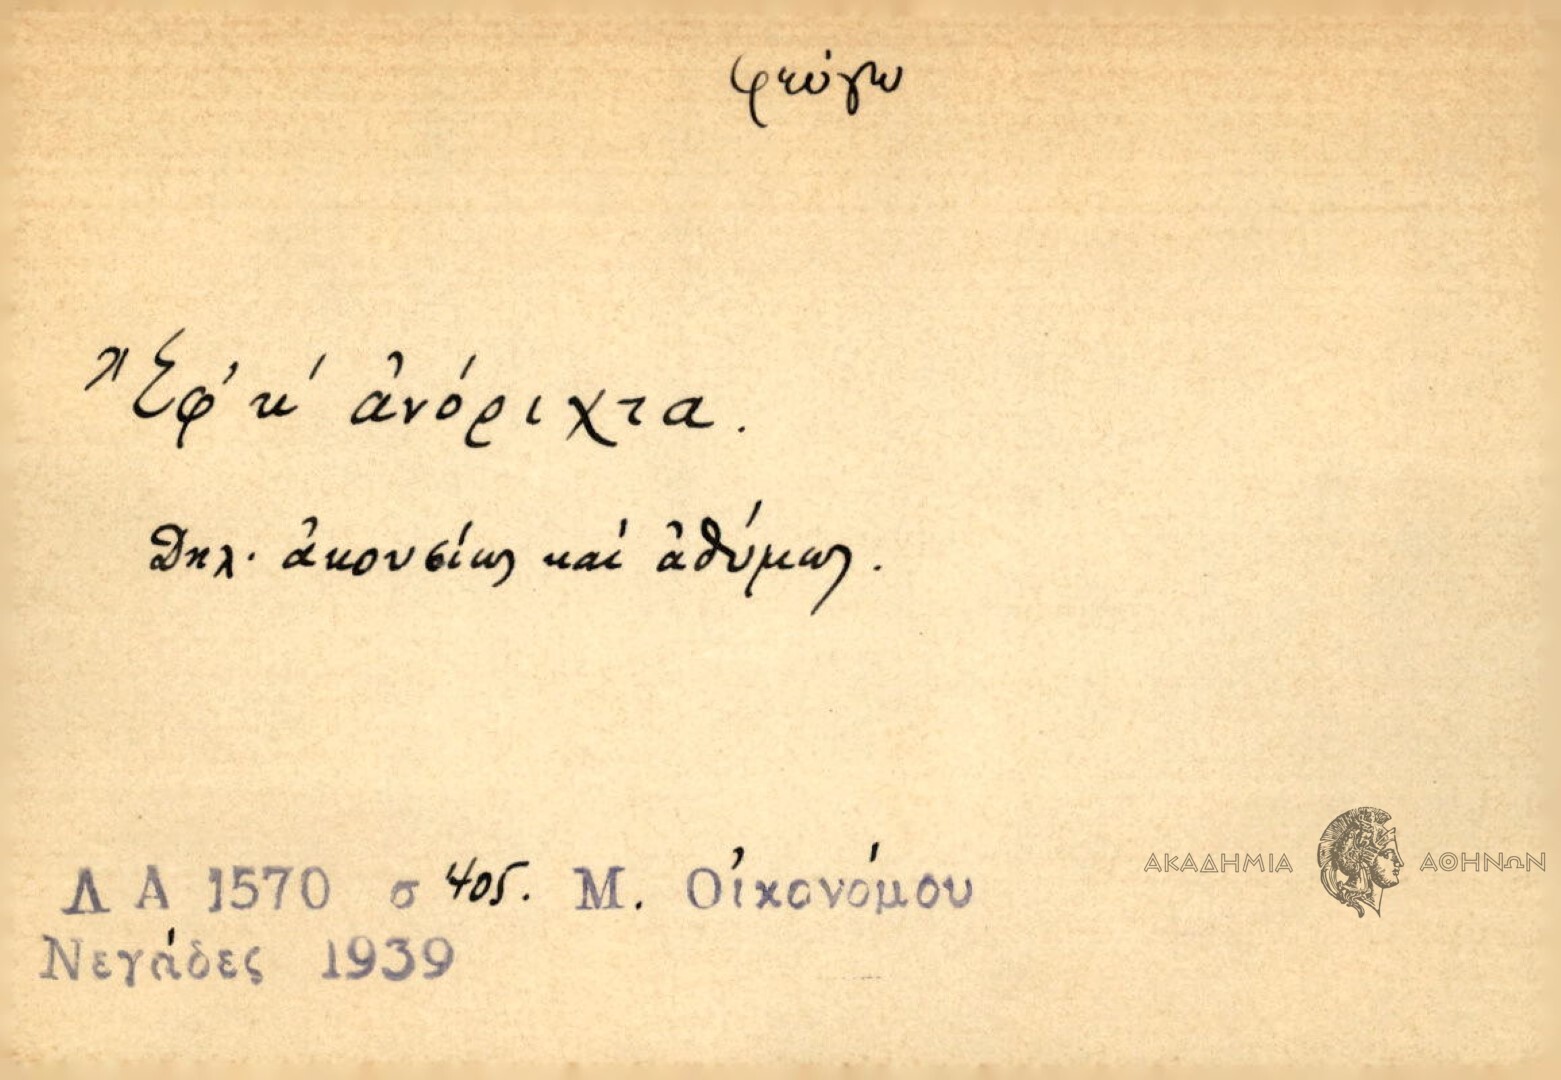 φεύγω
Ἔφ'κ' ἀνόριχτα.
Δηλ. ἀκουσίως καί ἀθύμως.
Λ Α 1570 σ 405. Μ. Οἰκονόμου
Νεγάδες 1939
ΑΚΑΔΗΜΙΑ ΑΘΗΝΩΝ